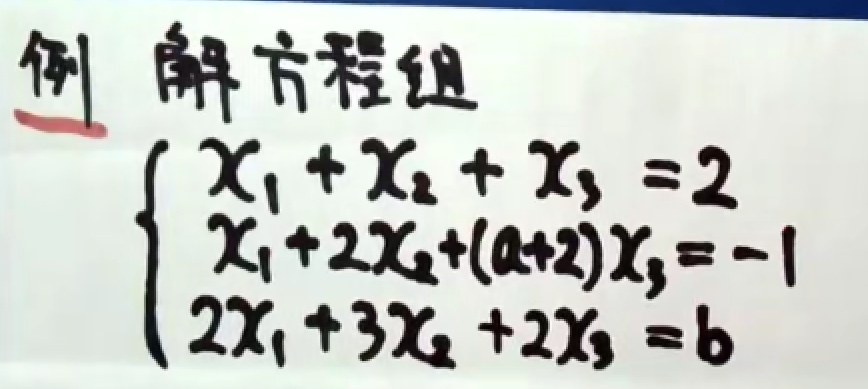 例 解方程组
x₁ + x₂ + x₃ = 2
x₁ + 2x₂ + (a+2)x₃ = -1
2x₁ + 3x₂ + 2x₃ = b